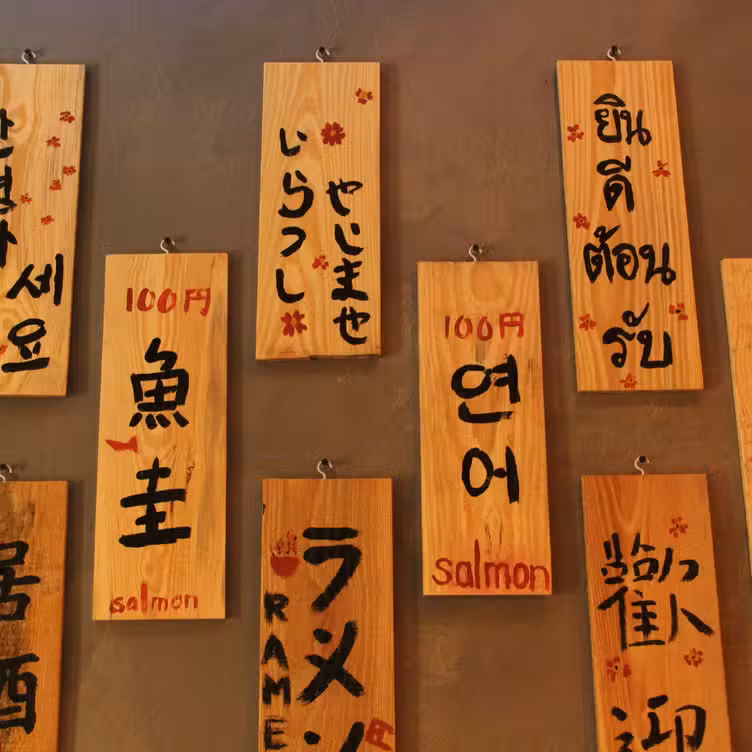 세요
いらっし
やじませ
ยิน
ดี
ต้อน
รับ
100円
魚圭
salmon
100円
연어
salmon
居酒
ラメン
RAME
円
歡迎